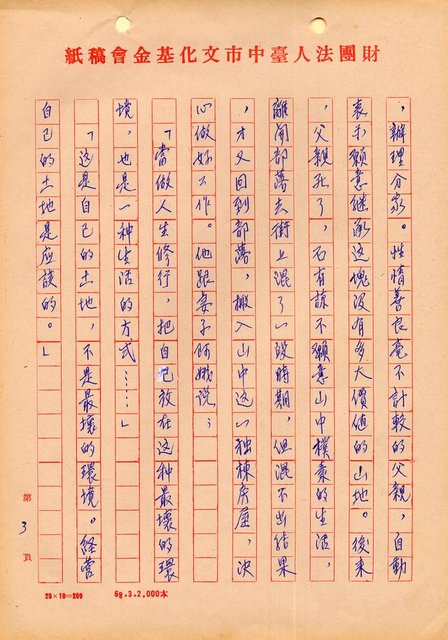 財團法人臺中市文化基金會稿紙
，辦理分家。性情善良毫不計較的父親，自動
表示願意繼承這塊沒有多大價值的山地。後來
，父親死了，石有諒不願意山中樸素的生活，
離開部落去街上混了一段時期，但混不出結果
，才又回到部落，搬入山中這一獨棟房屋，決
心做好工作。他跟妻子阿娥說：
「當做人生修行，把自己放在这种最壞的環
境，也是一种生活的方式……」
「這是自己的土地，不是最壞的環境。経营
自己的土地是应該的。」
第3頁
20×10=200
68.3.2,000本